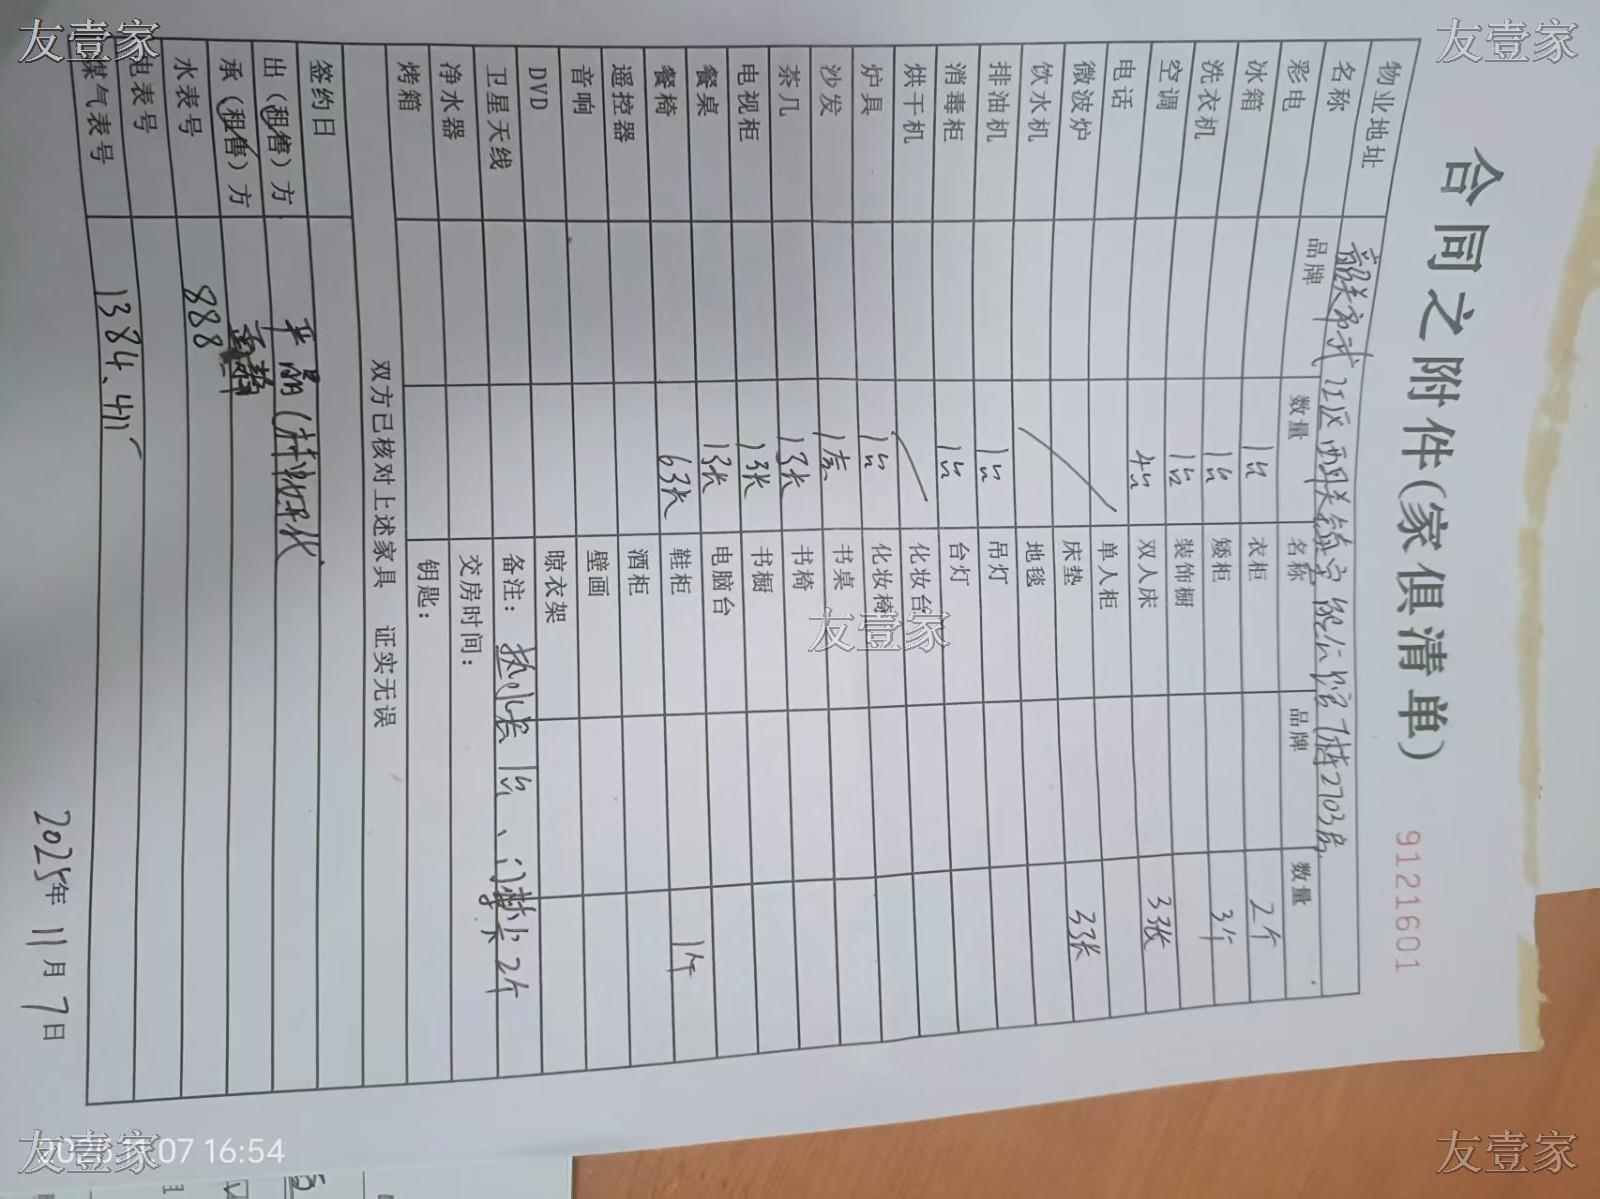 合同之附件(家俱清单)
91121601
物业地址 韶关市武江区西联 7栋2703房
名称 品牌 数量 名称 品牌 数量
彩电 衣柜 2个
冰箱 1台 矮柜 3个
洗衣机 1台 装饰橱
空调 4台 双人床 3张
电话 单人柜
微波炉 床垫 3张
饮水机 地毯
排油机 1台 吊灯
消毒柜 1台 台灯
烘干机 化妆台
炉具 1台 化妆椅
沙发 1套 书桌
茶几 1张 书椅
电视柜 1张 书橱
餐桌 1张 电脑台
餐椅 6张 鞋柜 1个
遥控器 酒柜
音响 壁画
DVD 晾衣架
卫星天线 备注: 热水器1台、门禁卡2个
净水器 交房时间:
烤箱 钥匙:
双方已核对上述家具 证实无误
签约日
出(租售)方
承(租售)方
水表号 888
电表号
煤气表号 1384.411
2025年11月7日
友壹家
友壹家
友壹家
友壹家
友壹家
2025.11.07 16:54